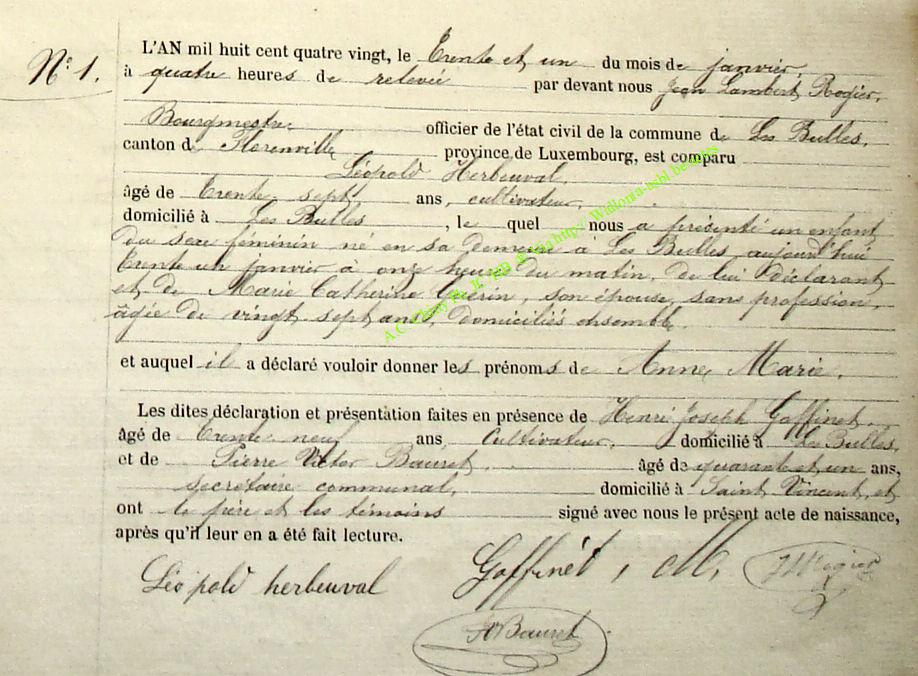 N° 1.
L'AN mil huit cent quatre vingt, le Trente et un du mois de janvier,
à quatre heures de relevée par devant nous Jean Lambert Rogier,
Bourgmestre officier de l'état civil de la commune de Les Bulles,
canton de Florenville province de Luxembourg, est comparu
Léopold Herbeuval,
âgé de trente sept ans, cultivateur,
domicilié à Les Bulles, le quel nous a présenté un enfant
du sexe féminin né en sa demeure à Les Bulles, aujourd'hui
trente un janvier à onze heures du matin, de lui déclarant
et de Marie Catherine Guerin, son épouse, sans profession,
âgée de vingt sept ans, domiciliés ensemble.
et auquel il a déclaré vouloir donner les prénoms de Anne Marie.
Les dites déclaration et présentation faites en présence de Henri Joseph Goffinet,
âgé de trente neuf ans, Cultivateur, domicilié à Les Bulles,
et de Pierre Victor Bauret, âgé de quarante et un ans,
secrétaire communal, domicilié à Saint Vincent, et
ont le père et les témoins signé avec nous le présent acte de naissance,
après qu'il leur en a été fait lecture.
Léopold herbeuval Goffinét, JL Rogier
Bauret